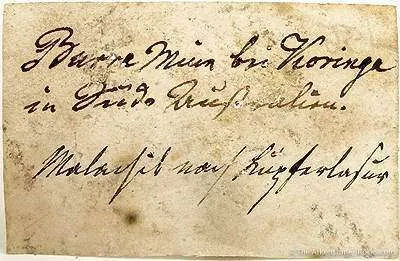 Burra Mine bei Koringa
in Süd Australien.
Malachit nach Kupferlasur